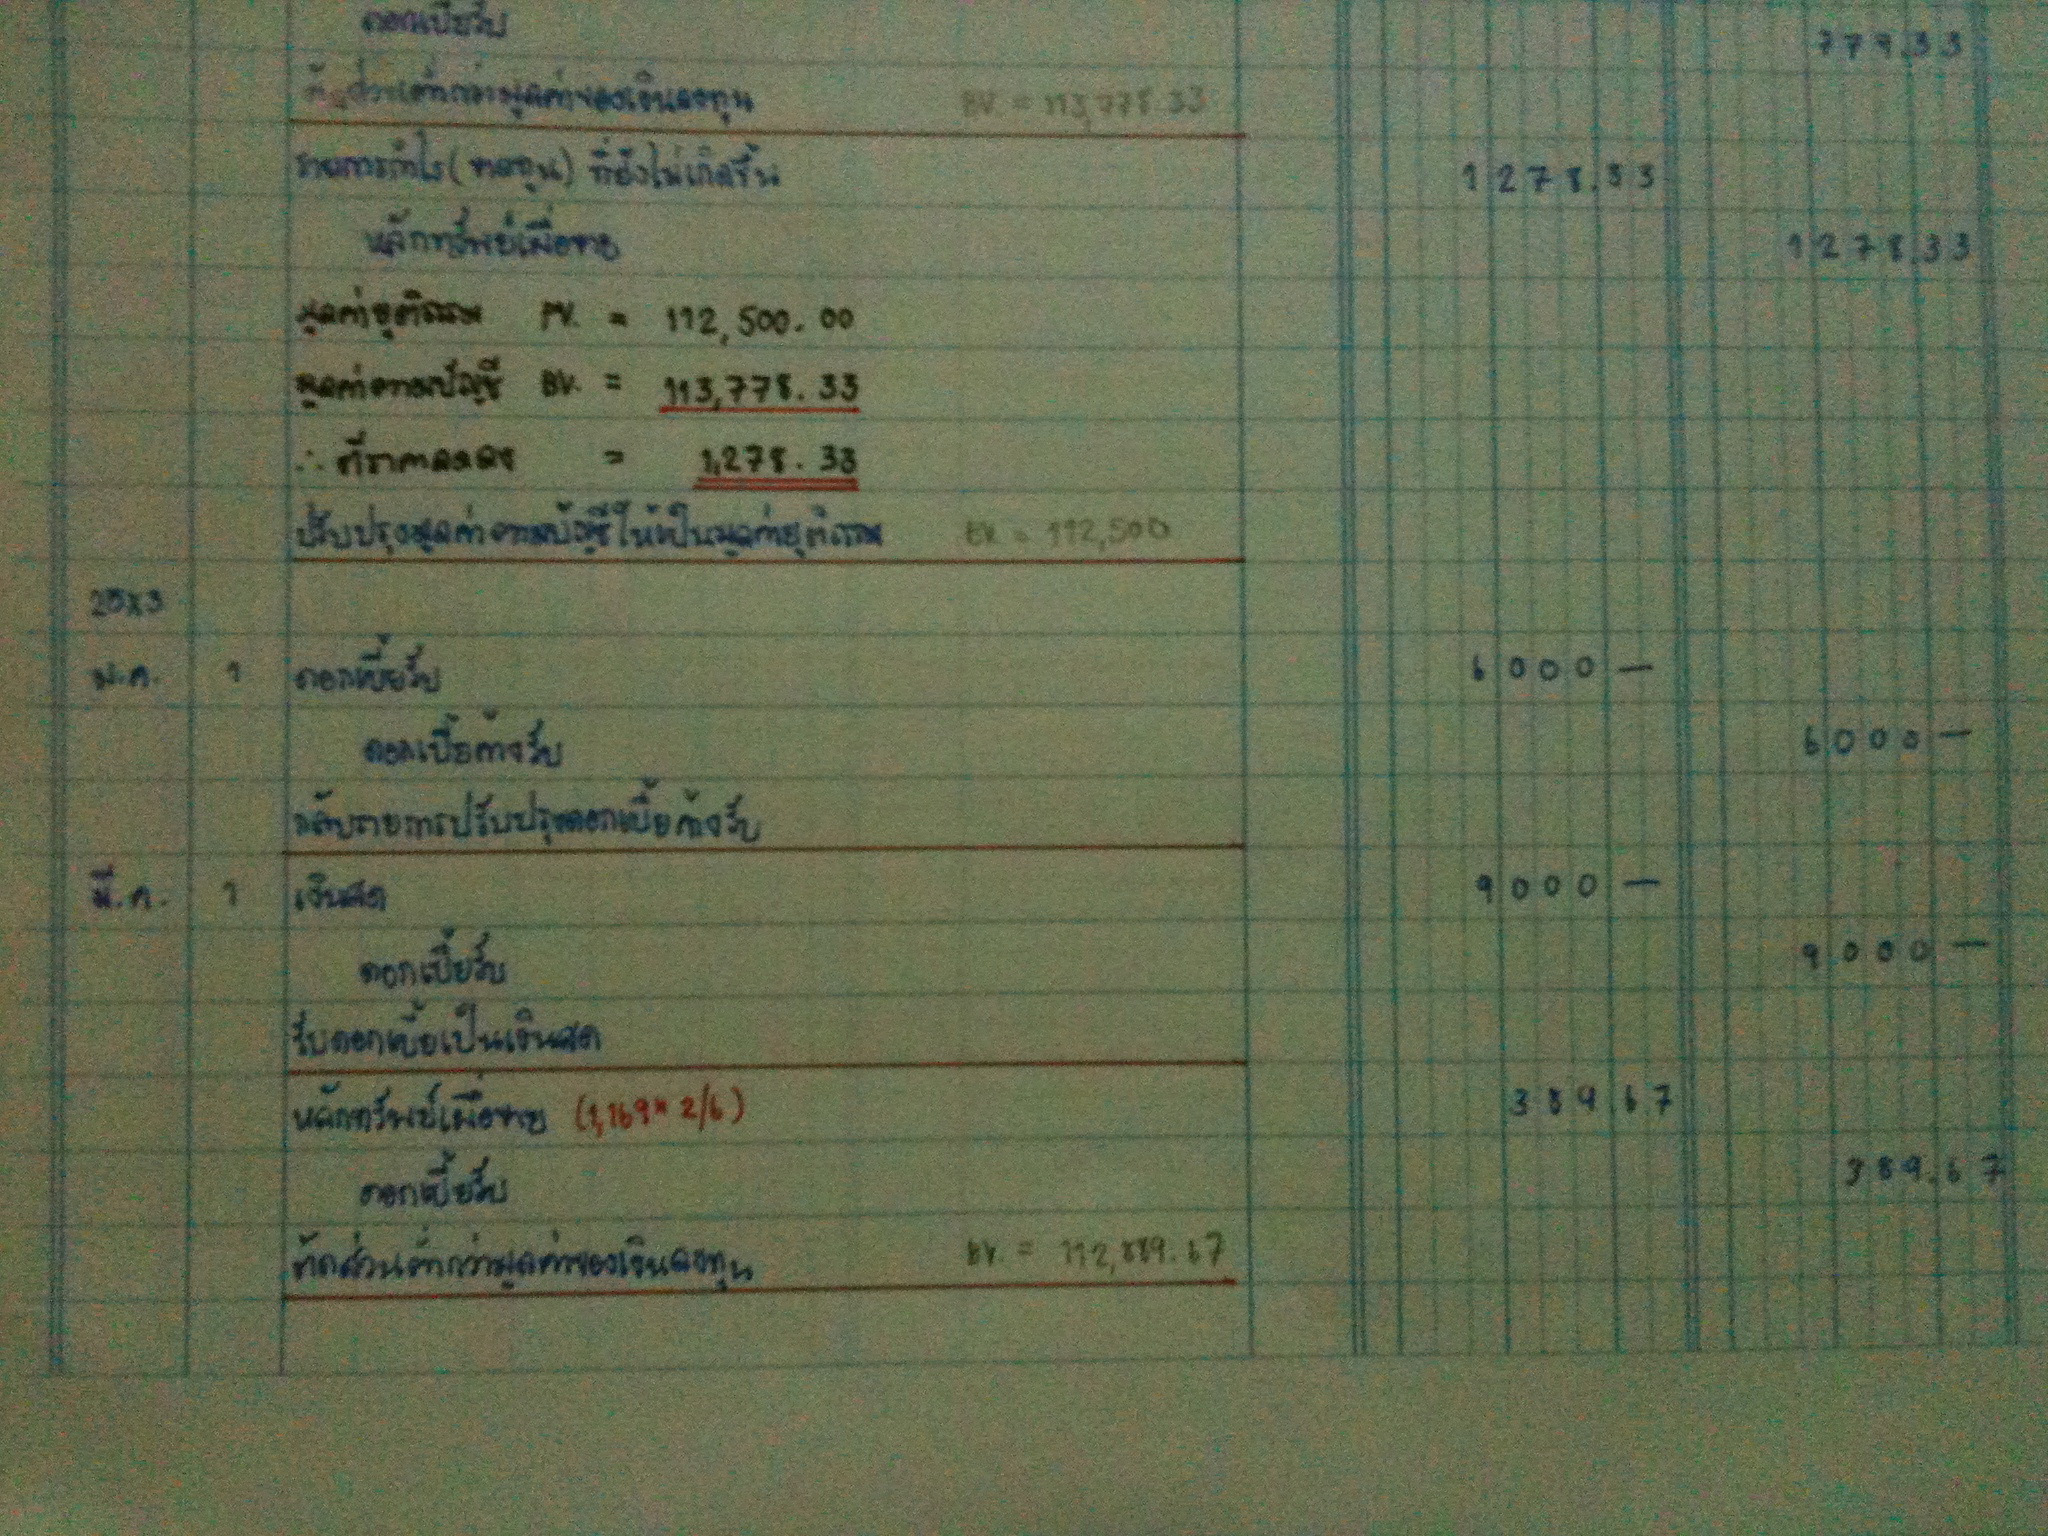 ดอกเบี้ยรับ 779.33
ตัดส่วนต่ำกว่ามูลค่าของเงินลงทุน BV. = 113,778.33
รายการกำไร(ขาดทุน) ที่ยังไม่เกิดขึ้น 1278.33
หลักทรัพย์เผื่อขาย 1278.33
มูลค่ายุติธรรม FV. = 112,500.00
มูลค่าตามบัญชี BV. = 113,778.33
∴ ตีราคาลดลง = 1,278.33
ปรับปรุงมูลค่าตามบัญชีให้เป็นมูลค่ายุติธรรม BV. = 112,500
25x3
ม.ค. 1 ดอกเบี้ยรับ 6000 —
ดอกเบี้ยค้างรับ 6000 —
กลับรายการปรับปรุงดอกเบี้ยค้างรับ
มี.ค. 1 เงินสด 9000 —
ดอกเบี้ยรับ 9000 —
รับดอกเบี้ยเป็นเงินสด
หลักทรัพย์เผื่อขาย (1,169 × 2/6) 389.67
ดอกเบี้ยรับ 389.67
ตัดส่วนต่ำกว่ามูลค่าของเงินลงทุน BV. = 112,889.67